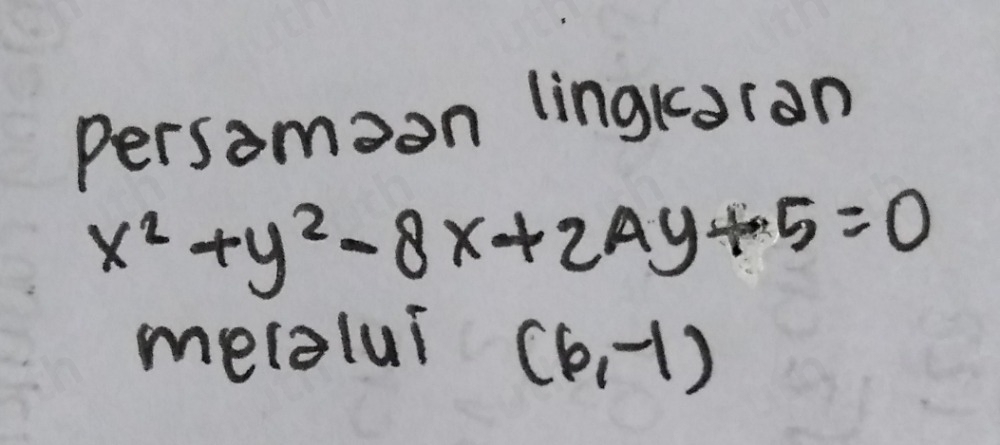 Persamaan lingkaran
x² + y² - 8x + 2Ay + 5 = 0
melalui (6,-1)